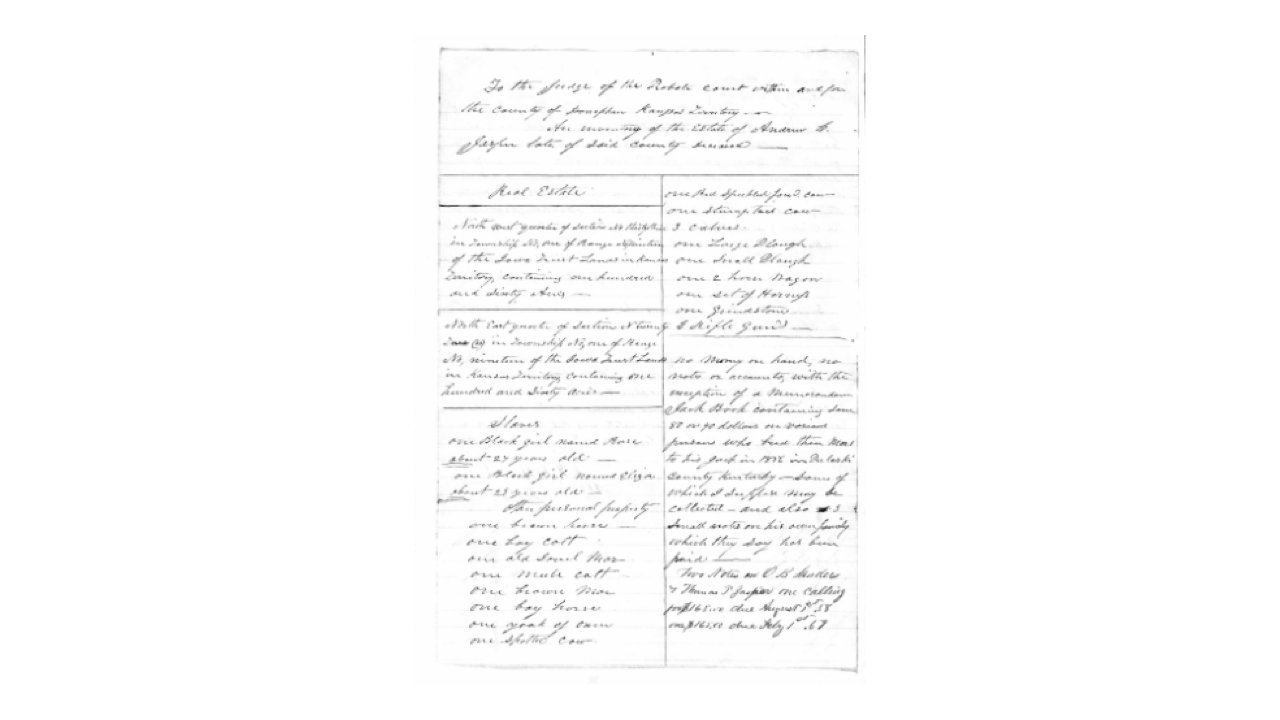 To the Judge of the Probate court within and for
the County of Doniphan Kansas Territory
An inventory of the Estate of Andrew
late of said county deceased
Real Estate
North west quarter of Section No
in Township No, one of Range Nineteen
of the Iowa Trust Lands in Kansas
Territory, containing one hundred
and Sixty Acres
North East quarter of Section N twenty
in Township No, one of Range
No, nineteen of the Iowa Trust Lands
in Kansas Territory containing one
hundred and Sixty acres
Slaves
one Black girl named Rose
about 27 years old
one Black girl named Eliza
about 23 years old
Other personal property
one brown horse
one bay colt
one old Sorrel Mare
one mule colt
one brown Mare
one bay horse
one yoak of
one Spotted Cow
one Red Speckled cow
one Stump tail cow
3 calves
one Large Plough
one Small Plough
one 2 horse Wagon
one set of Harness
one Grindstone
Rifle Gun
no Money on hand, no
notes or accounts, with the
exception of a Memorandum
Jack Book containing some
80 or 90 dollars on various
persons who bred their Mares
to his Jack in 1856 in
County Kentucky some of
which I Suppose may be
collected - and also 3
Small notes on his own family
which they say has been
paid
Two Notes on O B
& Thomas P one calling
for $165.00 due August 1st 58
one $165.00 due 1st 59